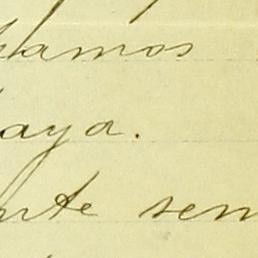 hamos
aya.
nte sen